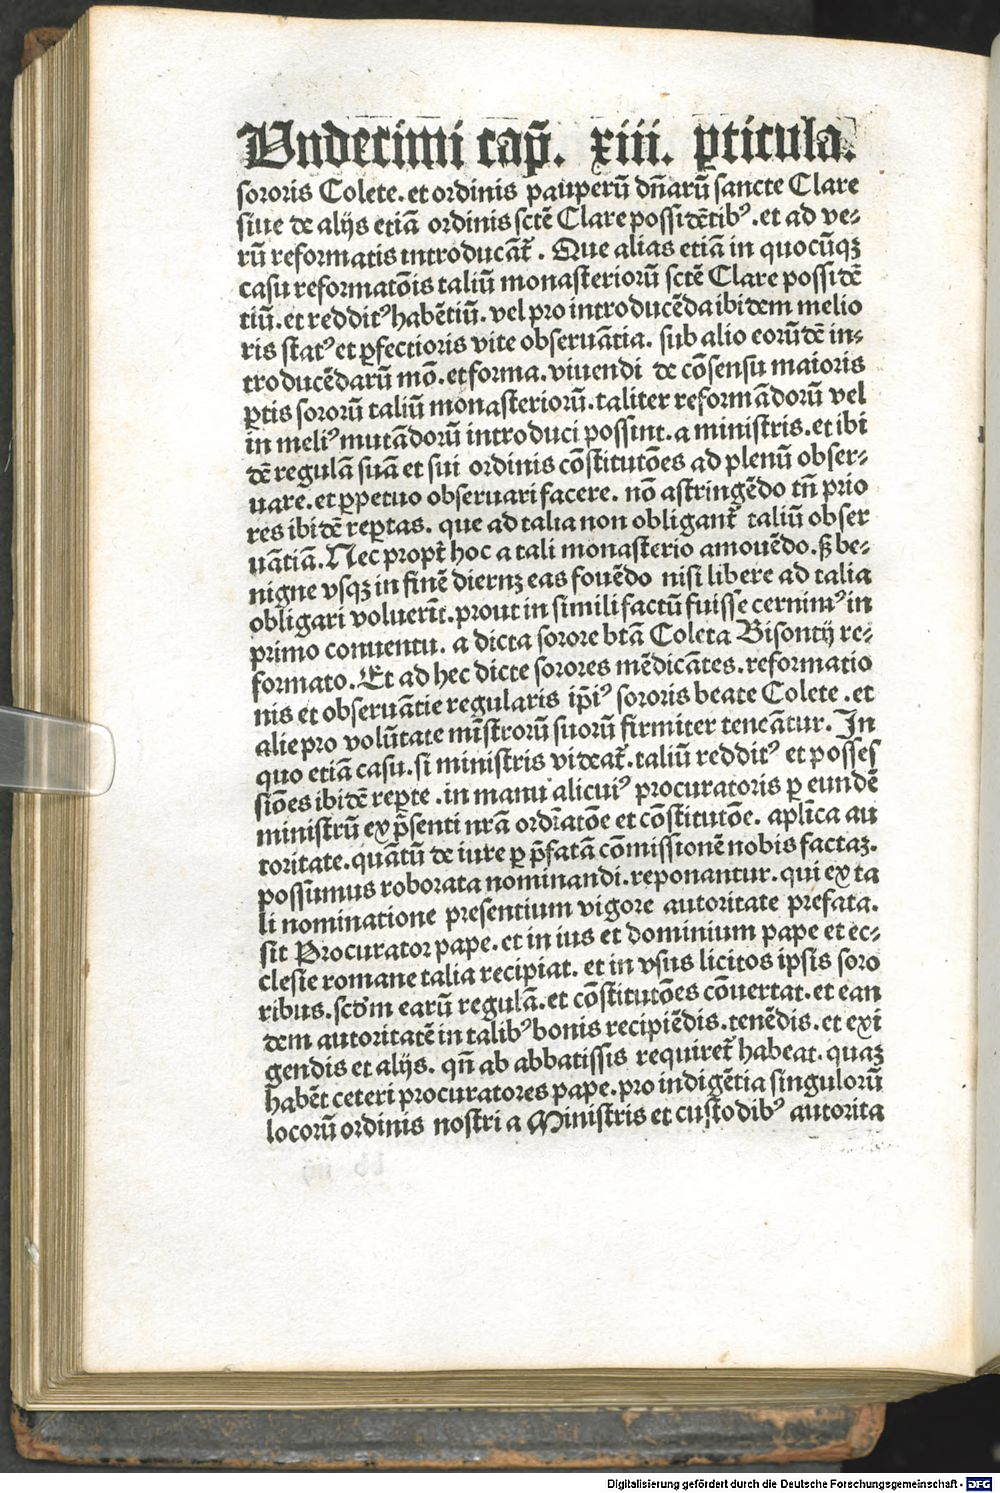 Vndecimi cap̄. xiii. ꝑticula.
sororis Colete. et ordinis pauperū dn̄arū sancte Clare
siue de alijs etiā ordinis sctē Clare possidētibꝰ. et ad ve-
rū reformatis introducāt̄. Que alias etiā in quocūqꝫ
casu reformatōis taliū monasteriorū sctē Clare possidē
tiū. et redditꝰ habētiū. vel pro introducēda ibidem melio
ris statꝰ et ꝑfectioris vite obseruātia. sub alio eorūdē in-
troducēdarū mō. et forma. viuendi de cōsensu maioris
ꝑtis sororū taliū monasteriorū. taliter reformādorū vel
in meliꝰ mutādorū introduci possint. a ministris. et ibi
dē regulā suā et sui ordinis cōstitutōes ad plenū obser-
uare. et ꝑpetuo obseruari facere. nō astringēdo tn̄ prio
res ibidē reꝑtas. que ad talia non obligant̄ taliū obser
uātiā. Nec propt̄ hoc a tali monasterio amouēdo. sꝫ be-
nigne vsqꝫ in finē diernꝫ eas fouēdo nisi libere ad talia
obligari voluerīt. prout in simili factū fuisse cernimꝰ in
primo conuentu. a dicta sorore btā Coleta Bisontij re-
formato. Et ad hec dicte sorores mēdicātes. reformatio
nis et obseruātie regularis ip̄iꝰ sororis beate Colete. et
alie pro volūtate mīstrorū suorū firmiter teneātur. In
quo etiā casu. si ministris videat̄. taliū redditꝰ et posses
siōes ibidē reꝑte. in manu alicuiꝰ procuratoris ꝑ eundē
ministrū ex p̄senti nrā ordīatōe et cōstitutōe. aplīca au
toritate. quātū de iure ꝑ p̄fatā cōmissionē nobis factaꝫ.
possumus roborata nominandi. reponantur. qui ex ta
li nominatione presentium vigore autoritate prefata.
sit Procurator pape. et in ius et dominium pape et ec-
clesie romane talia recipiat. et in vsus licitos ipsis soro
ribus. scdm̄ earū regulā. et cōstitutōes cōuertat. et ean
dem autoritatē in talibꝰ bonis recipiēdis. tenēdis. et exi
gendis et alijs. qn̄ ab abbatissis requiret̄ habeat. quaꝫ
habēt ceteri procuratores pape. pro indigētia singulorū
locorū ordinis nostri a Ministris et custodibꝰ autorita
Digitalisierung gefördert durch die Deutsche Forschungsgemeinschaft - DFG